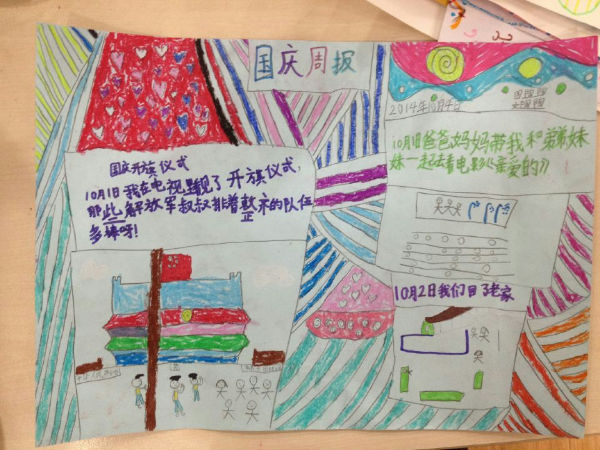 国庆周报
2014年10月4日
国庆开旗仪式
10月1日我在电视里观了开旗仪式，
那些解放军叔叔排着整齐的队伍
多棒呀！
10月1日爸爸妈妈带我和弟弟妹
妹一起去看电影《亲爱的》
10月2日我们回了老家